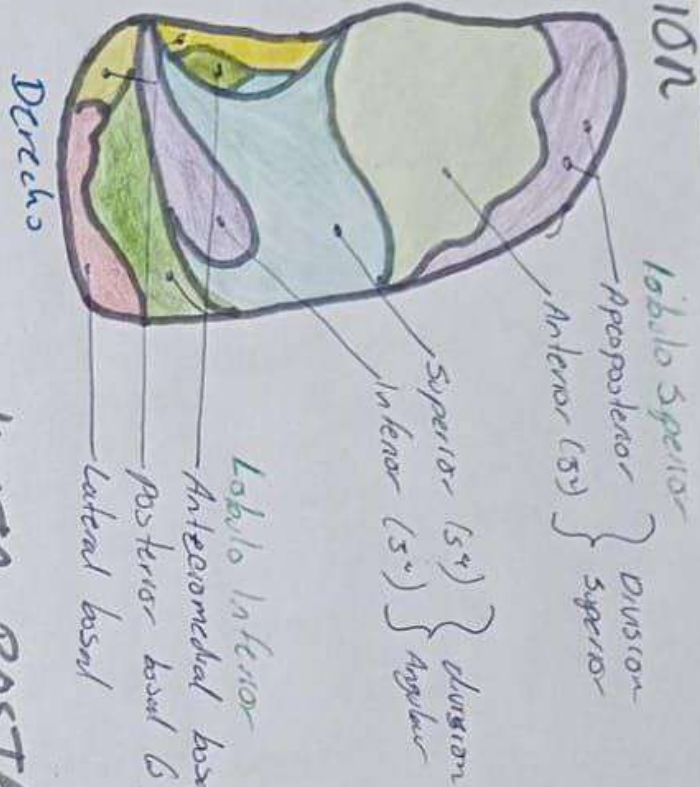 ION
Lóbulo Superior
Apicoposterior
Anterior (S3)
División
Superior
Superior (S4)
Inferior (S5)
división
Angular
Lobulo Inferior
Anteriomedial bas
Posterior basal (S
Lateral basal
Derecho